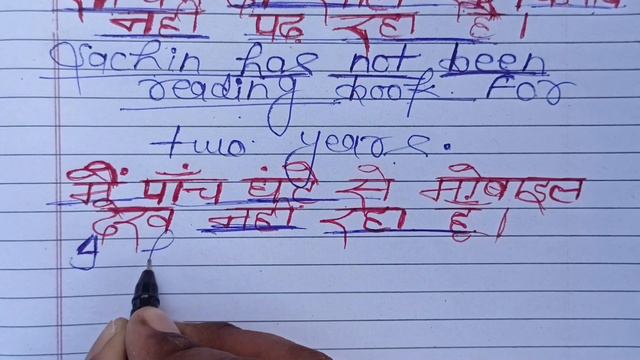 नहीं पढ़ रहा है।
Sachin has not been
reading book for
two years.
मैं पाँच घंटे से मोबाइल
देख नहीं रहा हूँ।